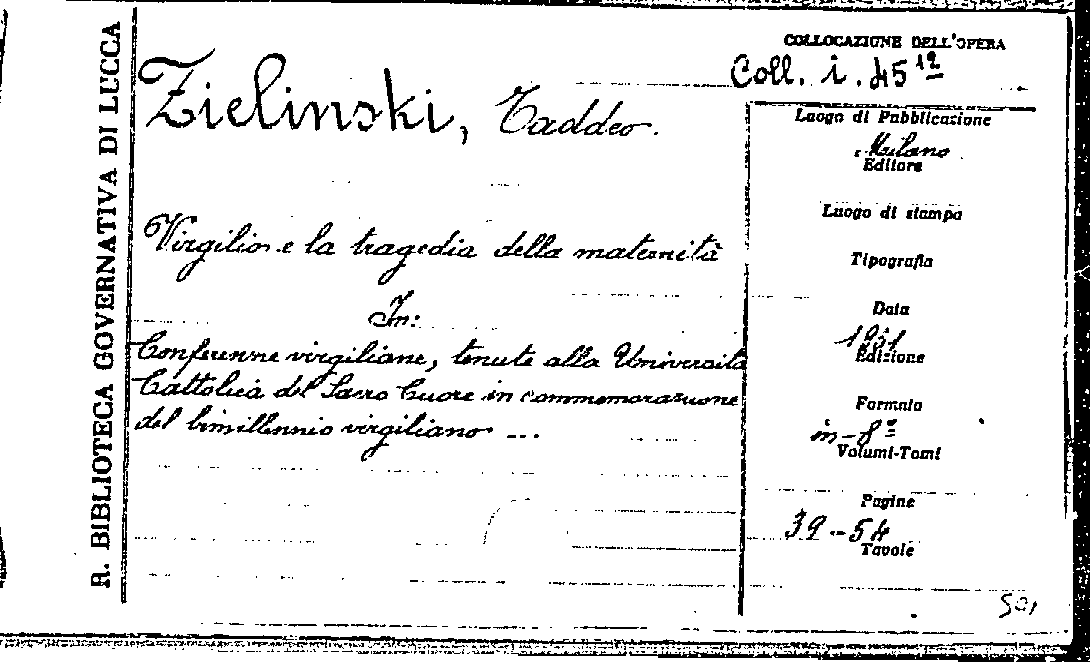 R. BIBLIOTECA GOVERNATIVA DI LUCCA
COLLOCAZIONE DELL'OPERA
Coll. i. 45 12
Zielinski, Taddeo.
Luogo di Pubblicazione
Milano
Editore
Luogo di stampa
Virgilio e la tragedia della maternità
Tipografia
In:
Data
1931
Edizione
Conferenze virgiliane, tenute alla Università
Cattolica del Sacro Cuore in commemorazione
del bimillennio virgiliano ...
Formato
in-8º
Volumi-Tomi
Pagine
39-54
Tavole
501